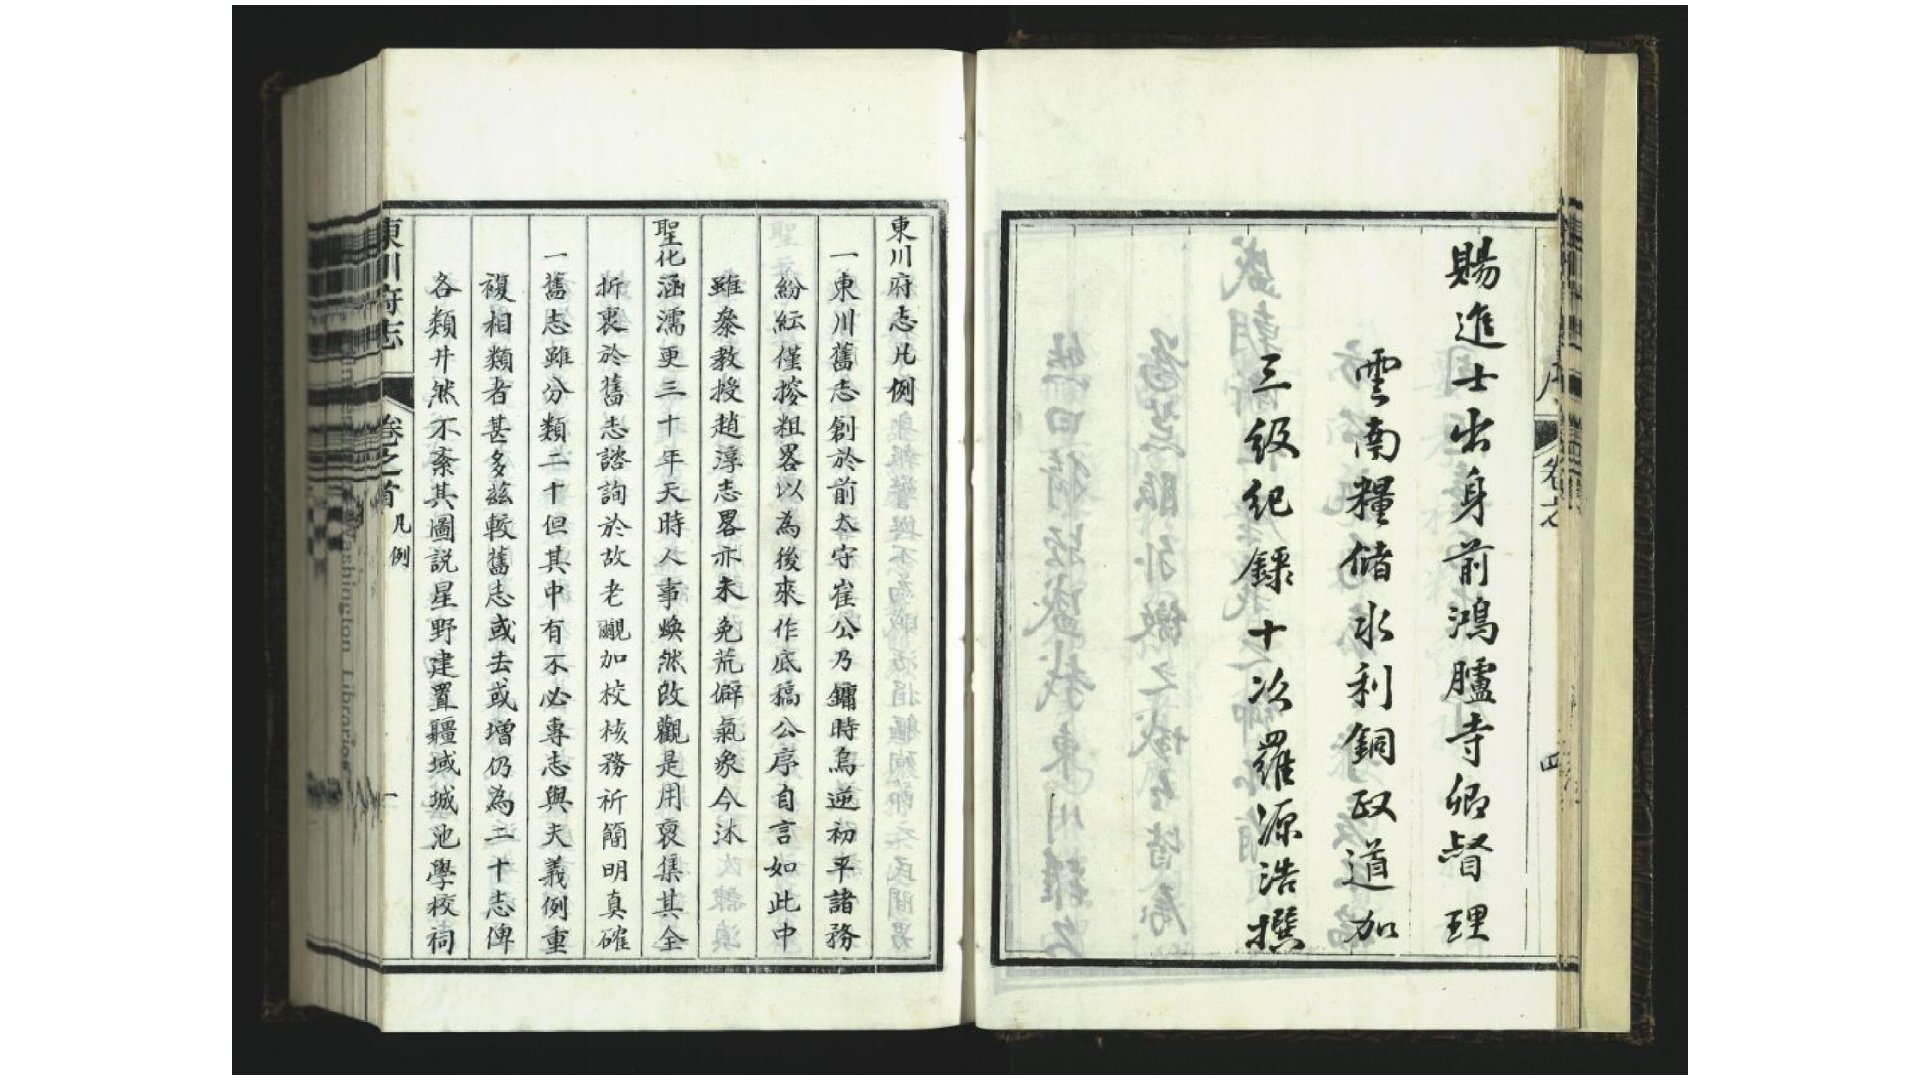 賜進士出身前鴻臚寺卿督理
雲南糧儲水利銅政道加
三級紀錄十次羅源浩撰
東川府志凡例
一東川舊志創於前太守崔公乃鏞時烏逆初平諸務
紛紜僅搜粗畧以為後來作底稿公序自言如此中
雖叅教授趙淳志畧亦未免荒僻氣象今沐
聖化涵濡更三十年天時人事煥然改觀是用裒集其全
折衷於舊志諮詢於故老覼加校核務祈簡明真確
一舊志雖分類二十但其中有不必專志與夫義例重
複相類者甚多兹較舊志或去或增仍為二十志俾
各類井然不紊其圖説星野建置疆域城池學校祠
東川府志
卷之首
凡例
一